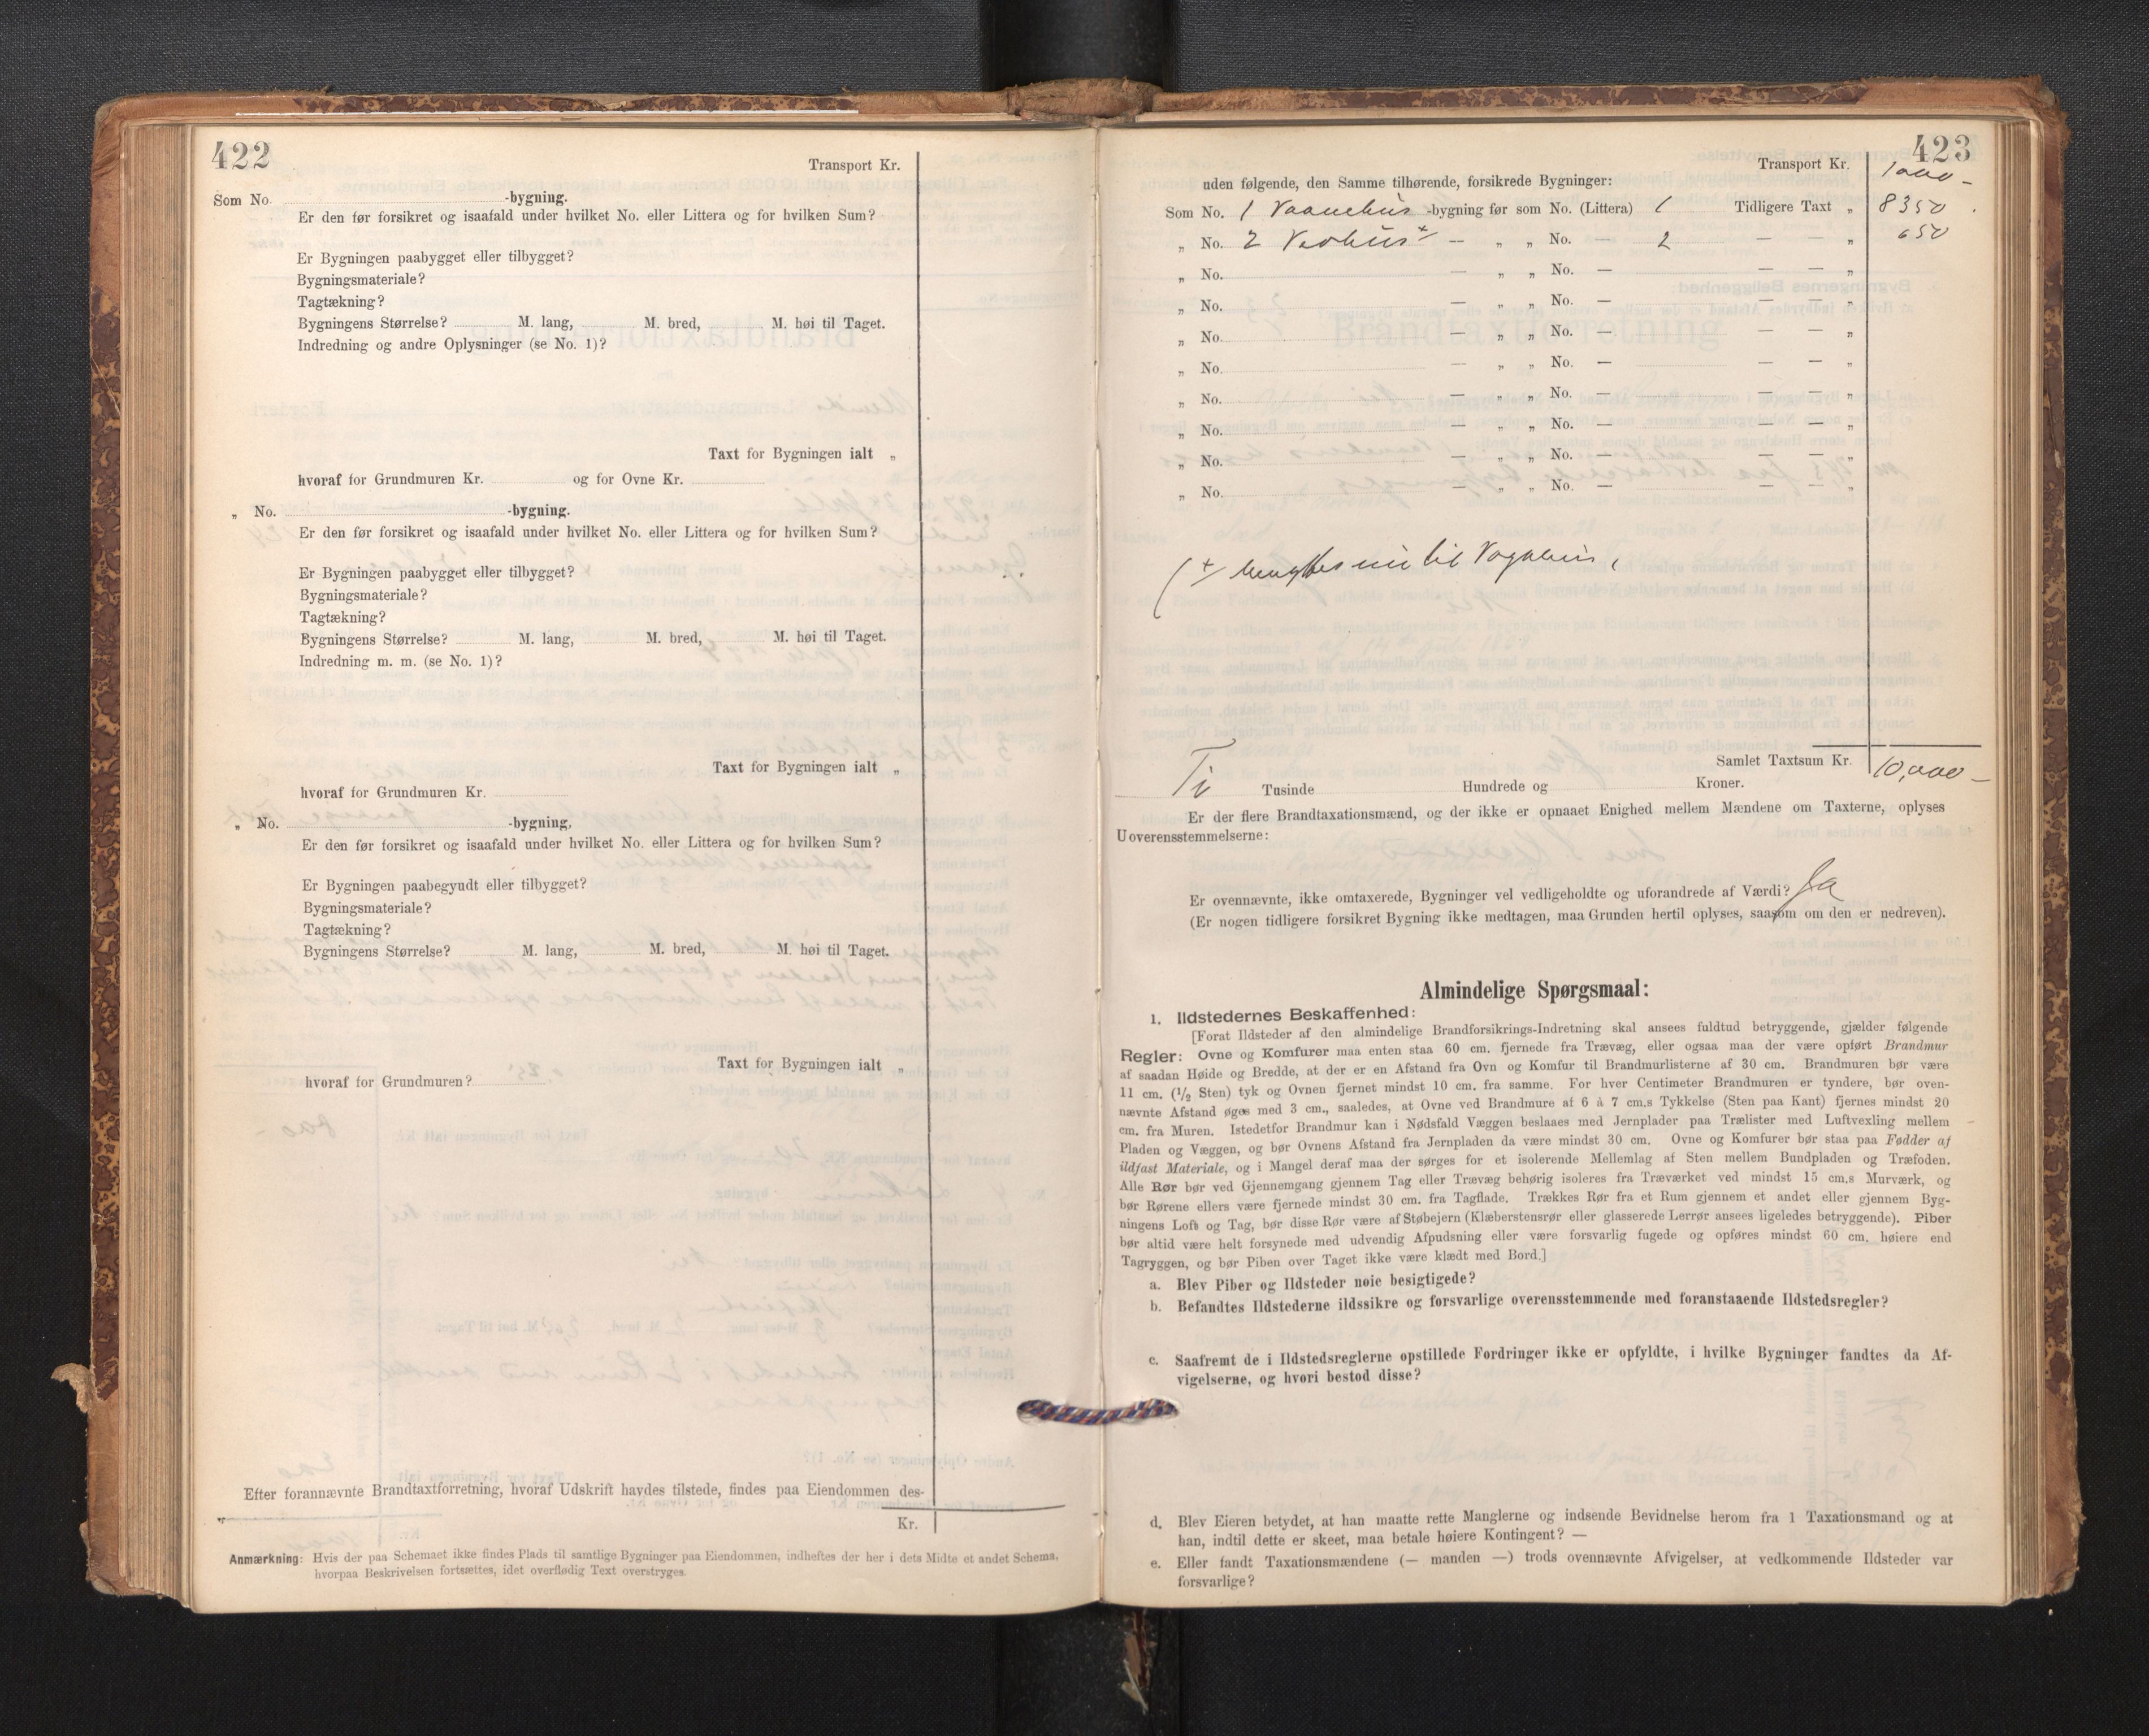 422
Transport Kr.
Som No. -bygning.
Er den før forsikret og isaafald under hvilket No. eller Littera og for hvilken Sum?
Er Bygningen paabygget eller tilbygget?
Bygningsmateriale?
Tagtækning?
Bygningens Størrelse? M. lang, M. bred, M. høi til Taget.
Indredning og andre Oplysninger (se No. 1)?
Taxt for Bygningen ialt „
hvoraf for Grundmuren Kr. og for Ovne Kr.
„ No. -bygning.
Er den før forsikret og isaafald under hvilket No. eller Littera og for hvilken Sum?
Er Bygningen paabygget eller tilbygget?
Bygningsmateriale?
Tagtækning?
Bygningens Størrelse? M. lang, M. bred, M. høi til Taget.
Indredning m. m. (se No. 1)?
Taxt for Bygningen ialt „
hvoraf for Grundmuren Kr.
„ No. -bygning,
Er den før forsikret og isaafald under hvilket No. eller Littera og for hvilken Sum?
Er Bygningen paabegyndt eller tilbygget?
Bygningsmateriale?
Tagtækning?
Bygningens Størrelse? M. lang, M. bred, M. høi til Taget.
Taxt for Bygningen ialt „
hvoraf for Grundmuren?
Efter forannævnte Brandtaxtforretning, hvoraf Udskrift havdes tilstede, findes paa Eiendommen des-
Kr.
Anmærkning: Hvis der paa Schemaet ikke findes Plads til samtlige Bygninger paa Eiendommen, indheftes der her i dets Midte et andet Schema,
hvorpaa Beskrivelsen fortsættes, idet overflødig Text overstryges.
423
Transport Kr. 1000 -
uden følgende, den Samme tilhørende, forsikrede Bygninger:
Som No. 1 Vaanehus -bygning før som No. (Littera) 1 Tidligere Taxt „ 8350
„ No. 2 Vedhus +/ — „ „ No. — 2 — — „ 650
„ No. — „ „ No. — — — „
„ No. — „ „ No. — — — „
„ No. — „ „ No. — — — „
„ No. — „ „ No. — — — „
„ No. — „ „ No. — — — „
„ No. — „ „ No. — — — „
„ No. — „ „ No. — — — „
„ No. — „ „ No. — — — „
( +/ benyttes nu til Vognhus,
Samlet Taxtsum Kr. 10,000 -
Ti Tusinde Hundrede og Kroner.
Er der flere Brandtaxationsmænd, og der ikke er opnaaet Enighed mellem Mændene om Taxterne, oplyses
Uoverensstemmelserne:
Er ovennævnte, ikke omtaxerede, Bygninger vel vedligeholdte og uforandrede af Værdi? Ja
(Er nogen tidligere forsikret Bygning ikke medtagen, maa Grunden hertil oplyses, saasom om den er nedreven).
Almindelige Spørgsmaal:
1. Ildstedernes Beskaffenhed:
[Forat Ildsteder af den almindelige Brandforsikrings-Indretning skal ansees fuldtud betryggende, gjælder følgende
Regler: Ovne og Komfurer maa enten staa 60 cm. fjernede fra Trævæg, eller ogsaa maa der være opført Brandmur
af saadan Høide og Bredde, at der er en Afstand fra Ovn og Komfur til Brandmurlisterne af 30 cm. Brandmuren bør være
11 cm. (½ Sten) tyk og Ovnen fjernet mindst 10 cm. fra samme. For hver Centimeter Brandmuren er tyndere, bør oven-
nævnte Afstand øges med 3 cm., saaledes, at Ovne ved Brandmure af 6 à 7 cm.s Tykkelse (Sten paa Kant) fjernes mindst 20
cm. fra Muren. Istedetfor Brandmur kan i Nødsfald Væggen beslaaes med Jernplader paa Trælister med Luftvexling mellem
Pladen og Væggen, og bør Ovnens Afstand fra Jernpladen da være mindst 30 cm. Ovne og Komfurer bør staa paa Fødder af
ildfast Materiale, og i Mangel deraf maa der sørges for et isolerende Mellemlag af Sten mellem Bundpladen og Træfoden.
Alle Rør bør ved Gjennemgang gjennem Tag eller Trævæg behørig isoleres fra Træværket ved mindst 15 cm.s Murværk, og
bør Rørene ellers være fjernede mindst 30 cm. fra Tagflade. Trækkes Rør fra et Rum gjennem et andet eller gjennem Byg-
ningens Loft og Tag, bør disse Rør være af Støbejern (Klæberstensrør eller glasserede Lerrør ansees ligeledes betryggende). Piber
bør altid være helt forsynede med udvendig Afpudsning eller være forsvarlig fugede og opføres mindst 60 cm. høiere end
Tagryggen, og bør Piben over Taget ikke være klædt med Bord.]
a. Blev Piber og Ildsteder nøie besigtigede?
b. Befandtes Ildstederne ildssikre og forsvarlige overensstemmende med foranstaaende Ildstedsregler?
c. Saafremt de i Ildstedsreglerne opstillede Fordringer ikke er opfyldte, i hvilke Bygninger fandtes da Af-
vigelserne, og hvori bestod disse?
d. Blev Eieren betydet, at han maatte rette Manglerne og indsende Bevidnelse herom fra 1 Taxationsmand og at
han, indtil dette er skeet, maa betale høiere Kontingent? —
e. Eller fandt Taxationsmændene (— manden —) trods ovennævnte Afvigelser, at vedkommende Ildsteder var
forsvarlige?